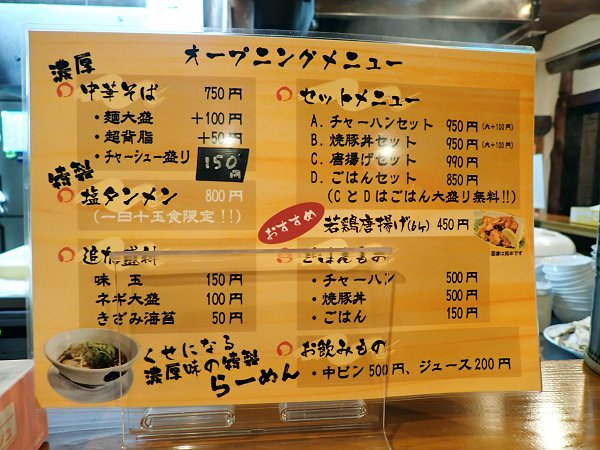 オープニングメニュー
濃厚
中華そば 750円
・麺大盛 +100円
・超背脂 +50円
・チャーシュー盛り 150円
特製
塩タンメン 800円
(一日十五食限定!!)
追加盛料
味玉 150円
ネギ大盛 100円
きざみ海苔 50円
くせになる
濃厚味の特製
らーめん
セットメニュー
A. チャーハンセット 950円(大+100円)
B. 焼豚丼セット 950円(大+100円)
C. 唐揚げセット 990円
D. ごはんセット 850円
(CとDはごはん大盛り無料!!)
おすすめ
若鶏唐揚げ(6ケ) 450円
画像は見本です
ごはんもの
・チャーハン 500円
・焼豚丼 500円
・ごはん 150円
お飲みもの
・中ビン500円、ジュース200円